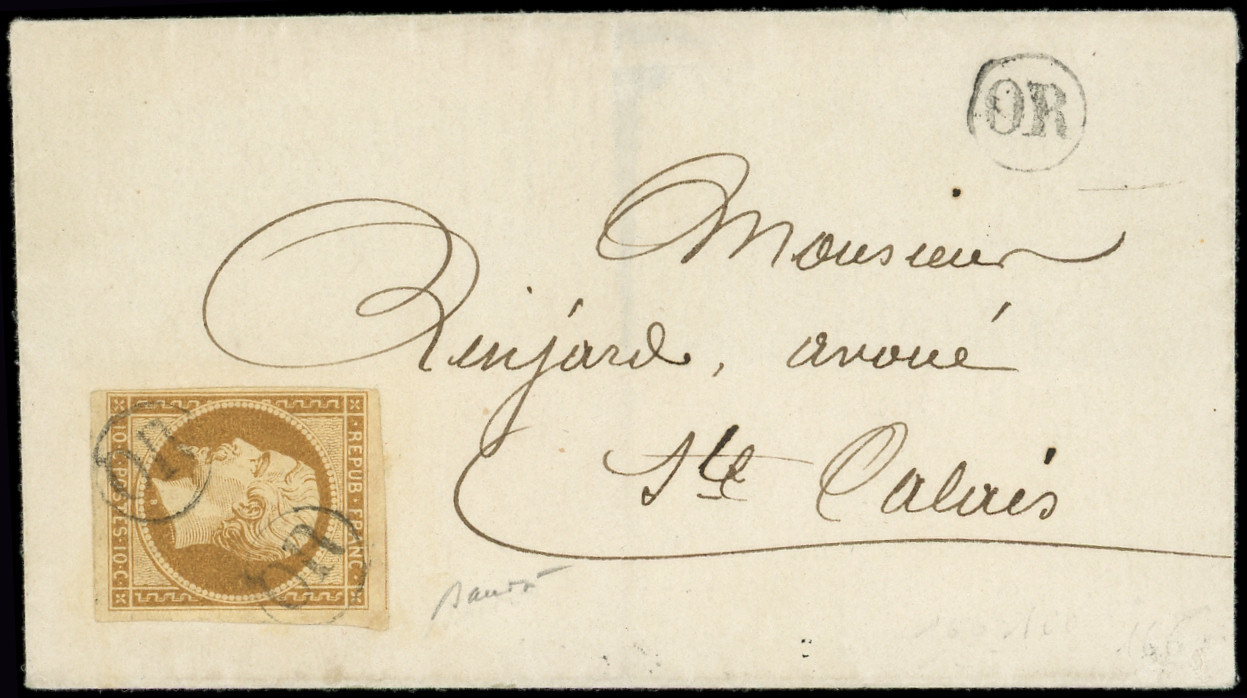 OR
Monsieur
Rinjard, avoué
Ste Calais
REPUB·FRANC·
10·C·POSTES·10·C·
OR
OR